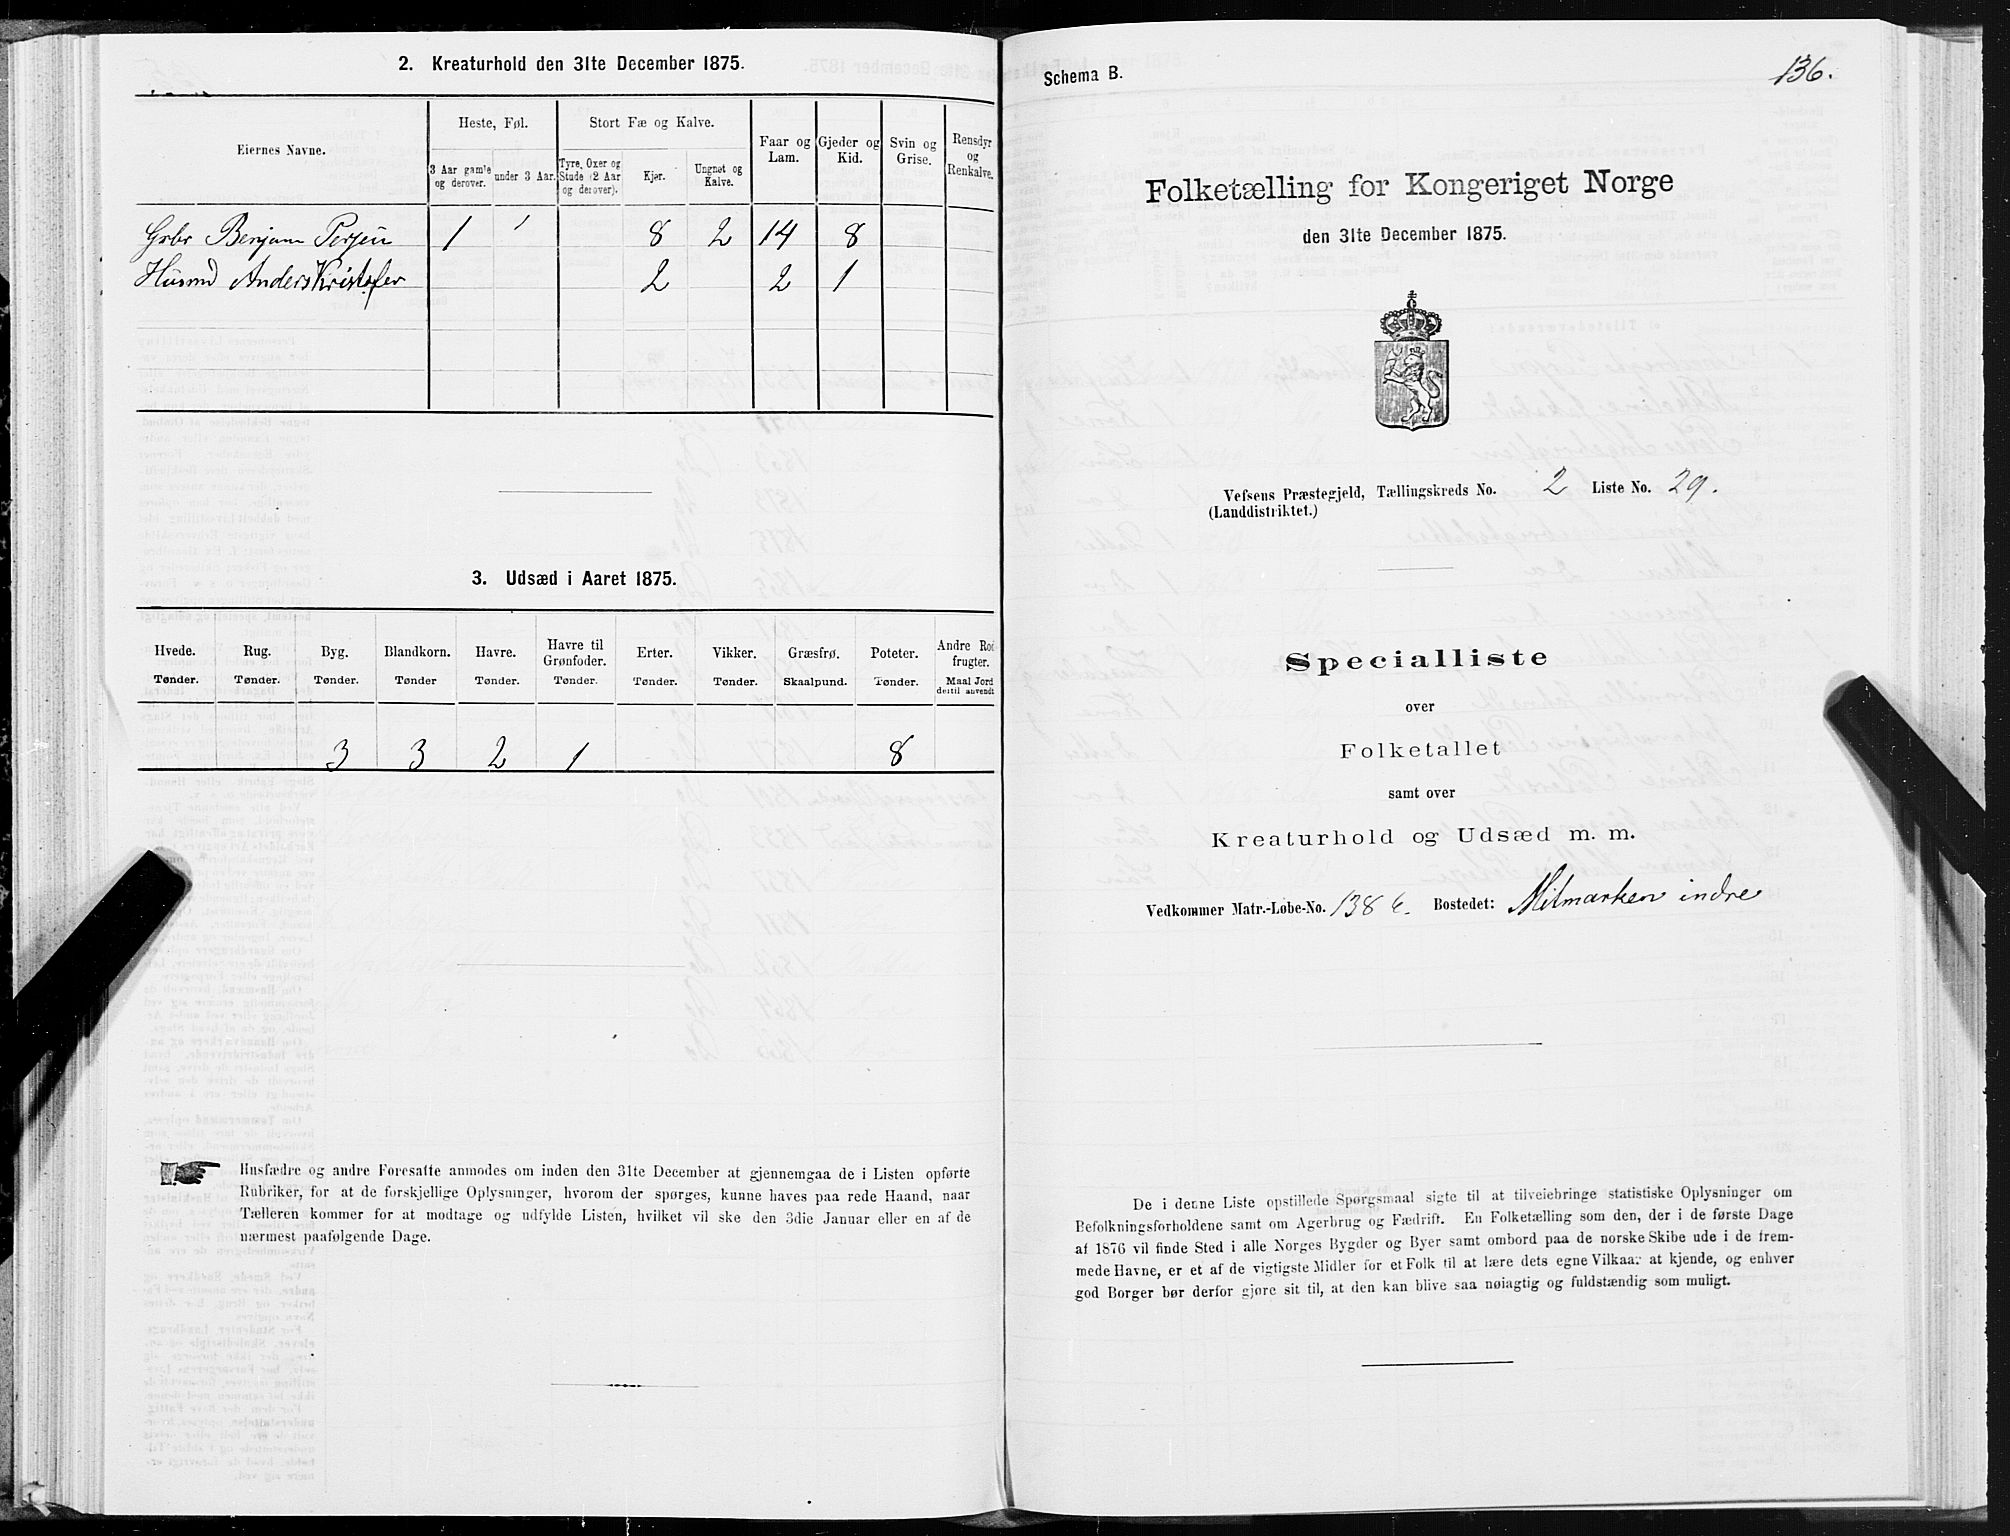 2. Kreaturhold den 31te December 1875.
Eiernes Navne.
Heste, Føl.
3 Aar gamle og derover.
under 3 Aar.
Stort Fæ og Kalve.
Tyre, Oxer og Stude (2 Aar og derover).
Kjør.
Ungnøt og Kalve.
Faar og Lam.
Gjeder og Kid.
Svin og Grise.
Rensdyr og Renkalve.
Gbr Benjam Persen 1 ' 8 2 14 8
Husmd Anders Kristofer 2 2 1
3. Udsæd i Aaret 1875.
Hvede. Rug. Byg. Blandkorn. Havre. Havre til Grønfoder. Erter. Vikker. Græsfrø. Poteter. Andre Rodfrugter.
Tønder. Tønder. Tønder. Tønder Tønder. Tønder. Tønder. Tønder. Skaalpund. Tønder. Maal Jord dertil anvendt
3 3 2 1 8
Husfædre og andre Foresatte anmodes om inden den 31te December at gjennemgaa de i Listen opførte
Rubriker, for at de forskjellige Oplysninger, hvorom der spørges, kunne haves paa rede Haand, naar
Tælleren kommer for at modtage og udfylde Listen, hvilket vil ske den 3die Januar eller en af de
nærmest paafølgende Dage.
136.
Schema B.
Folketælling for Kongeriget Norge
den 31te December 1875.
Vefsens Præstegjeld, Tællingskreds No. 2 Liste No. 29.
(Landdistriktet.)
Specialliste
over
Folketallet
samt over
Kreaturhold og Udsæd m. m.
Vedkommer Matr.-Løbe-No. 138 Bostedet: Mitmarken indre
De i denne Liste opstillede Spørgsmaal sigte til at tilveiebringe statistiske Oplysninger om
Befolkningsforholdene samt om Agerbrug og Fædrift. En Folketælling som den, der i de første Dage
af 1876 vil finde Sted i alle Norges Bygder og Byer samt ombord paa de norske Skibe ude i de frem-
mede Havne, er et af de vigtigste Midler for et Folk til at lære dets egne Vilkaar at kjende, og enhver
god Borger bør derfor gjøre sit til, at den kan blive saa nøiagtig og fuldstændig som muligt.